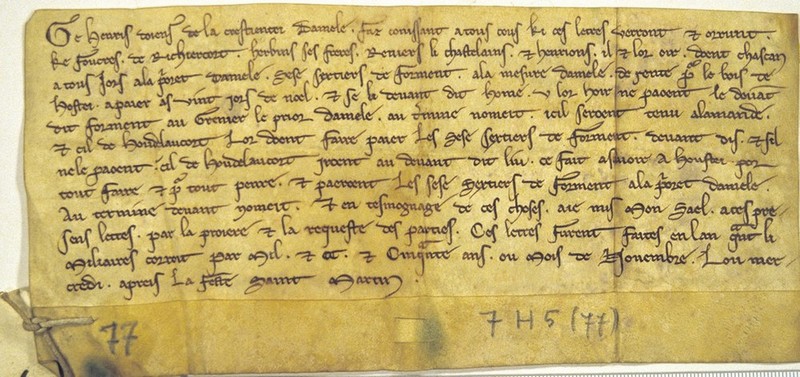 Ge henris doiens de la crestientei damele. faz conissant a tous cous ki ces lettres verront & orrunt.
ke foucres. de Richiercort. herbins ses freres. Reniers li chastelains. & henrions. il & lor oir. doent chascan
a tous jors a la pret damele. sese sertiers de forment. a la mesure damele. de rente pr le bois de
hester. a paier as vint jors de noel. & se li devant dit home. v lor hoir ne paoent le devat
dit forment au Grenier le prior damele. au tmine nomeit. icil seroent tenu alamande.
& cil de houdelaucort lor doent faire paier les sese sertiers de forment. devant dis. & sil
nele paoent. cil de houdelaucort iroent au devant dit liu. ce fait asavoir a houster por
tout faire & pr tout penre. & paeroent les sese sertiers de forment a la pret damele.
Au termine devant nomeit. & en tesmognage de ces choses. aie mis mon sael. a ces pre
sens lettes. par la proiere & la requeste des parties. Ces lettres furent faites en lan qnt li
miliaires corroit par mil. & CC. & cinqnte ans. ou mois de Novembre. Lou mer
credi. apreis la feste saint martin.
77 7 H 5 (77)